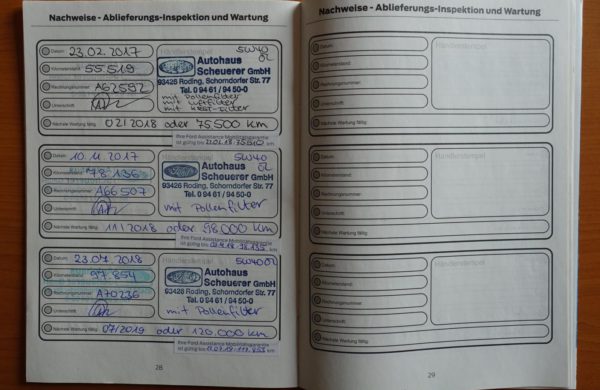 Nachweise - Ablieferungs-Inspektion und Wartung
Datum: 23.02.2017
Händlerstempel
5W40
ÖL
Kilometerstand: 55.519
Autohaus
Scheuerer GmbH
93426 Roding, Schorndorfer Str. 77
Tel. 0 94 61 / 94 50-0
Rechnungsnummer: A62592
mit Pollenfilter
mit Luftfilter
Unterschrift:
Nächste Wartung fällig: 02/2018 oder 75500 km
Ihre Ford Assistance Mobilitätsgarantie
ist gültig bis km
Datum: 10.11.2017
5W40
ÖL
Kilometerstand: 78.136
Autohaus
Scheuerer GmbH
93426 Roding, Schorndorfer Str. 77
Tel. 0 94 61 / 94 50-0
Rechnungsnummer: A66507
Unterschrift:
mit Pollenfilter
Nächste Wartung fällig: 11/2018 oder 98.000 km
Ihre Ford Assistance Mobilitätsgarantie
ist gültig bis km
Datum: 23.07.2018
Händlerstempel
5W40 ÖL
Kilometerstand: 97.854
Autohaus
Scheuerer GmbH
93426 Roding, Schorndorfer Str. 77
Tel. 0 94 61 / 94 50-0
Rechnungsnummer: A70236
Unterschrift:
mit Pollenfilter
Nächste Wartung fällig: 07/2019 oder 120.000 km
Ihre Ford Assistance Mobilitätsgarantie
ist gültig bis km
28
Nachweise - Ablieferungs-Inspektion und Wartung
Datum:
Händlerstempel
Kilometerstand:
Rechnungsnummer:
Unterschrift:
Nächste Wartung fällig:
Datum:
Händlerstempel
Kilometerstand:
Rechnungsnummer:
Unterschrift:
Nächste Wartung fällig:
Datum:
Händlerstempel
Kilometerstand:
Rechnungsnummer:
Unterschrift:
Nächste Wartung fällig:
29